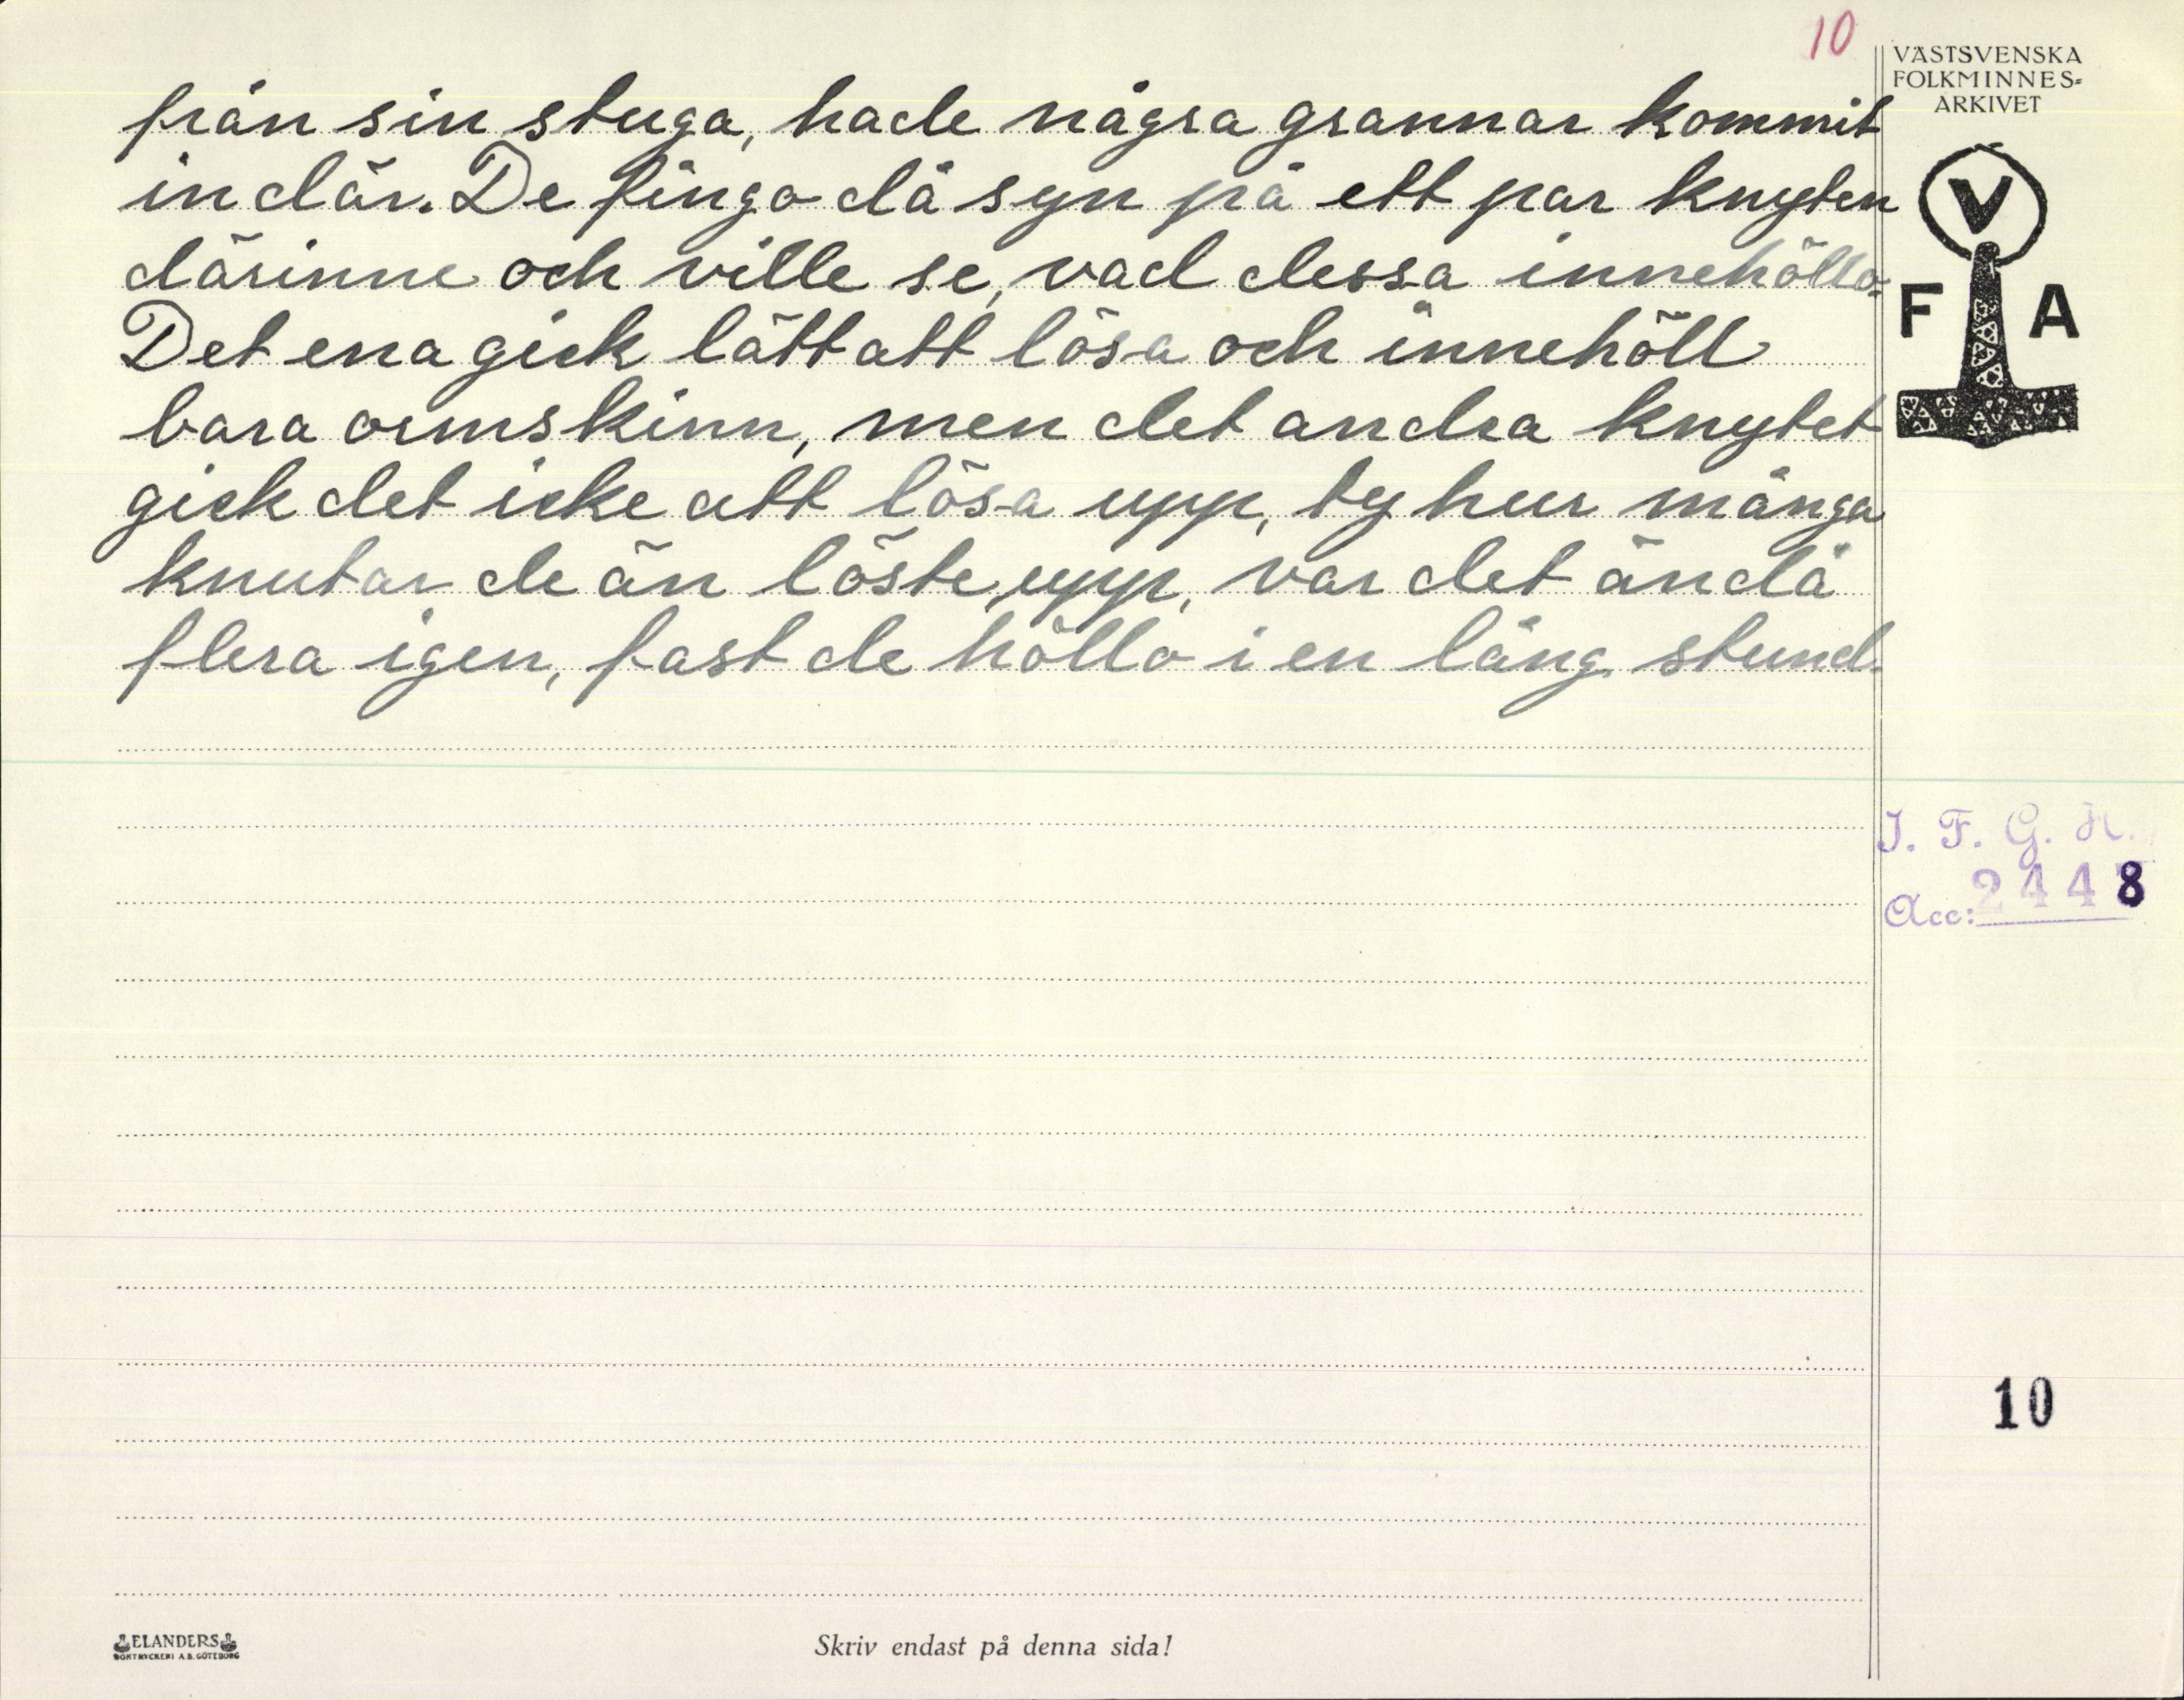 10
VÄSTSVENSKA
FOLKMINNES=
ARKIVET
från sin stuga, hade några grannar kommit
in där. De fingo då syn på ett par knyten
därinne och ville se, vad dessa innehöllo.
Det ena gick lätt att lösa och innehöll
bara ormskinn, men det andra knytet
gick det icke att lösa upp, ty hur många
knutar de än löste upp, var det ändå
flera igen, fast de höllo i en lång stund.
V
F A
I. F. G. H.
Acc: 2448
10
ELANDERS
BOKTRYCKERI A.B. GÖTEBORG
Skriv endast på denna sida!